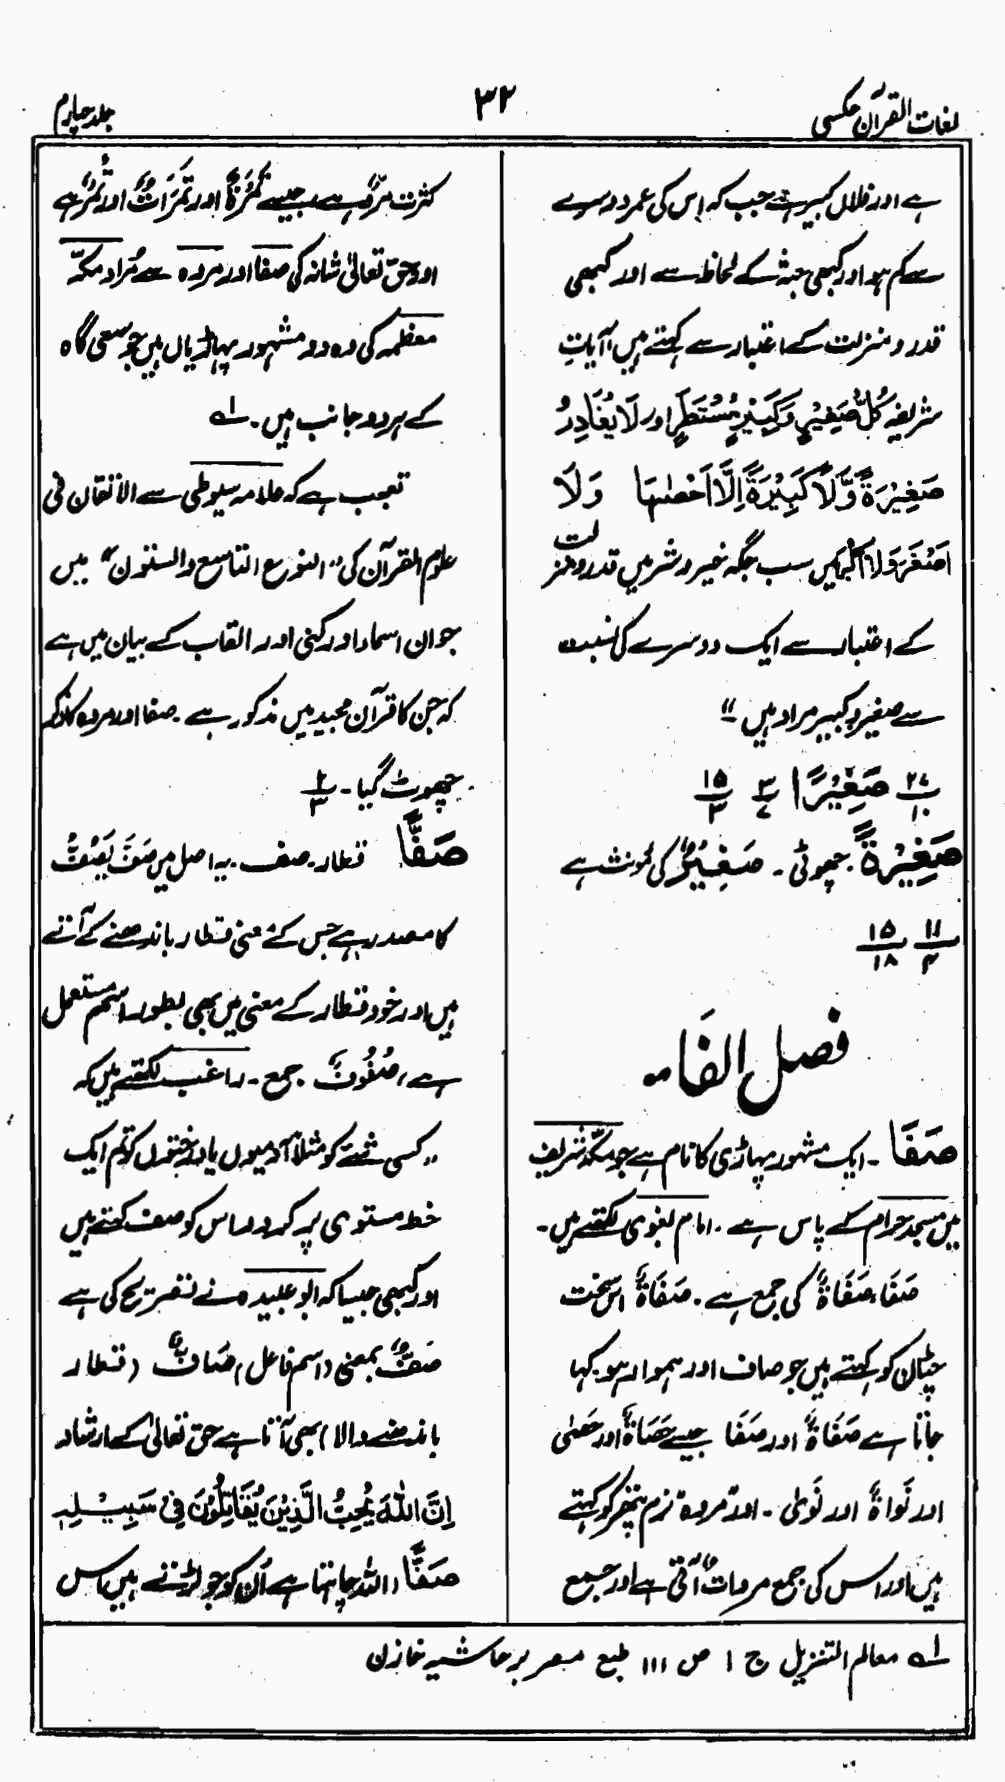 لغات القرآن عکسی
۳۲
جلد چہارم
ہے اور فلاں کبیر ہے جب کہ اس کی عمر دوسرے
سے کم ہو اور کبھی جثہ کے لحاظ سے اور کبھی
قدر و منزلت کے اعتبار سے کہتے ہیں، آیاتِ
شریفہ كُلُّ صَغِيْرٍ وَّكَبِيْرٍ مُّسْتَطَرٌ اور لَا يُغَادِرُ
صَغِيْرَةً وَّلَا كَبِيْرَةً اِلَّا اَحْصٰىهَا وَلَا
اَصْغَرَ وَلَا اَكْبَرَ میں سب جگہ خیر و شر میں قدر و منزلت
کے اعتبار سے ایک دوسرے کی نسبت
سے صغیر و کبیر مراد ہیں ؎
۲۷/۱۰ صَغِيْرًا ۳/۷ ۱۵/۳
صَغِيْرَةً ۔ چھوٹی ۔ صَغِيْرٌ کی مؤنث ہے
۱۱/۴ ۱۵/۱۸
فصل الفاء
صَفَا ۔ ایک مشہور پہاڑی کا نام ہے جو مکہ شریف
میں مسجد حرام کے پاس ہے ۔ امام بغوی لکھتے ہیں ۔
صَفَا، صَفَاةٌ کی جمع ہے ۔ صَفَاةٌ اس سخت
چٹان کو کہتے ہیں جو صاف اور ہموار ہو ۔ کہا
جاتا ہے صَفَاةٌ اور صَفَا جیسے حَصَاةٌ اور حَصٰی
اور نَوَاةٌ اور نَوٰی ۔ اور مروہ نرم پتھر کو کہتے
ہیں اور اس کی جمع مروات آتی ہے اور جمع
کثرت مَرْوٌ ہے جیسے تَمْرَةٌ اور تَمَرَاتٌ اور تَمْرٌ ہے
اور حق تعالیٰ شانہ کی صفا اور مروہ سے مُراد مکہ
معظمہ کی وہ دو مشہور پہاڑیاں ہیں جو سعی گاہ
کے ہر دو جانب ہیں ۔ ۱ھ
تعجب ہے کہ علامہ سیوطی سے الاتقان فی
علوم القرآن کی "النوع التاسع والستون" میں
جو ان اسماء اور کنی اور القاب کے بیان میں ہے
کہ جن کا قرآن مجید میں ذکور ہے ۔ صفا اور مروہ کا ذکر
چھوٹ گیا ۔ ۲/۳
صَفًّا قطار ۔ صف ۔ یہ اصل میں صَفَّ يَصُفُّ
کا مصدر ہے جس کے معنی قطار باندھنے کے آتے
ہیں اور خود قطار کے معنی میں بھی بطور اسم مستعمل
ہے، صُفُوْفٌ جمع ۔ راغب لکھتے ہیں کہ
"کسی شئے کو مثلاً آدمیوں یا درختوں کو تم ایک
خط مستوی پر کردو اس کو صف کہتے ہیں
اور کبھی جیسا کہ ابو عبیدہ نے تصریح کی ہے
صَفٌّ بمعنی (اسم فاعل) صَافٌّ (قطار
باندھنے والا) بھی آتا ہے حق تعالیٰ کے ارشاد
اِنَّ اللهَ يُحِبُّ الَّذِيْنَ يُقَاتِلُوْنَ فِيْ سَبِيْلِهٖ
صَفًّا (اللہ چاہتا ہے اُن کو جو لڑتے ہیں اس
۱ھ معالم التنزیل ج ۱ ص ۱۱۱ طبع مصر بر حاشیہ خازن